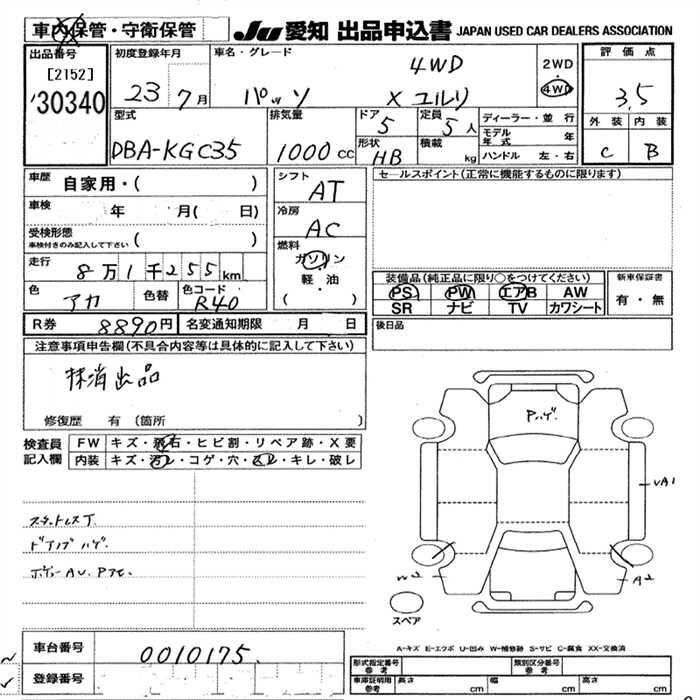 車内保管・守衛保管
Ju 愛知 出品申込書 JAPAN USED CAR DEALERS ASSOCIATION
出品番号 [2152] 30340
初度登録年月 23 7月
車名・グレード パッソ 4WD X ユルリ
2WD・4WD
評価点 3.5
外装 C 内装 B
型式 DBA-KGC35
排気量 1000cc
ドア 5 形状 HB
定員 5人 積載 kg
ディーラー・並行
モデル年式 年
ハンドル 左・右
車歴 自家用・( )
車検 年 月( 日)
受検形態 車検付きのみ記入して下さい ( )
走行 8万1千255km
色 アカ 色替 色コード R40
シフト AT
冷房 AC
燃料 ガソリン 軽・油 ・( )
セールスポイント(正常に機能するものに限ります)
装備品(純正品に限り○をつけてください)
PS PW エアB AW
SR ナビ TV カワシート
新車保証書 有・無
R券 8890円 名変通知期限 月 日
後日品
注意事項申告欄(不具合内容等は具体的に記入して下さい)
抹消出品
修復歴 有(箇所 )
検査員記入欄
FW キズ・飛石・ヒビ割・リペア跡・X要
内装 キズ・汚レ・コゲ・穴・スレ・キレ・破レ
スタットレスT
ドアノブハゲ
ボデーAU.Pアセ.
Pハゲ.
VA1
W2
A2
スペア
A-キズ E-エクボ U-凹み W-補修跡 S-サビ C-腐食 XX-交換済
車台番号 0010175
登録番号
形式指定番号 参考 類別区分番号 参考
車庫証明用 参考 長さ cm 幅 cm 高さ cm